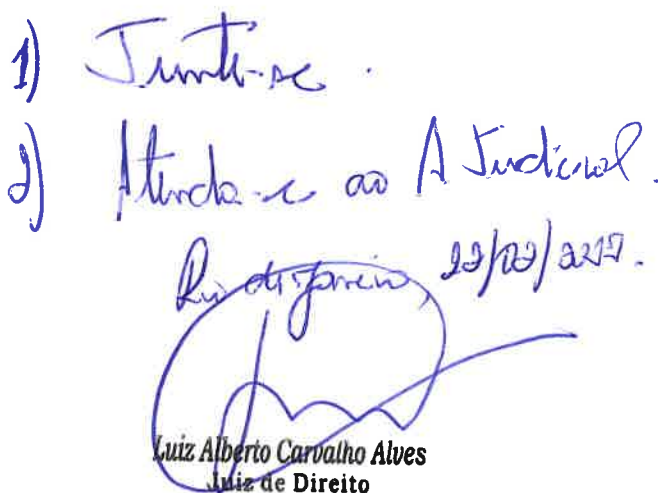 1) Junte-se.
2) Atenda-se ao A Judicial.
Rio de Janeiro, 22/02/2017.
Luiz Alberto Carvalho Alves
Juiz de Direito